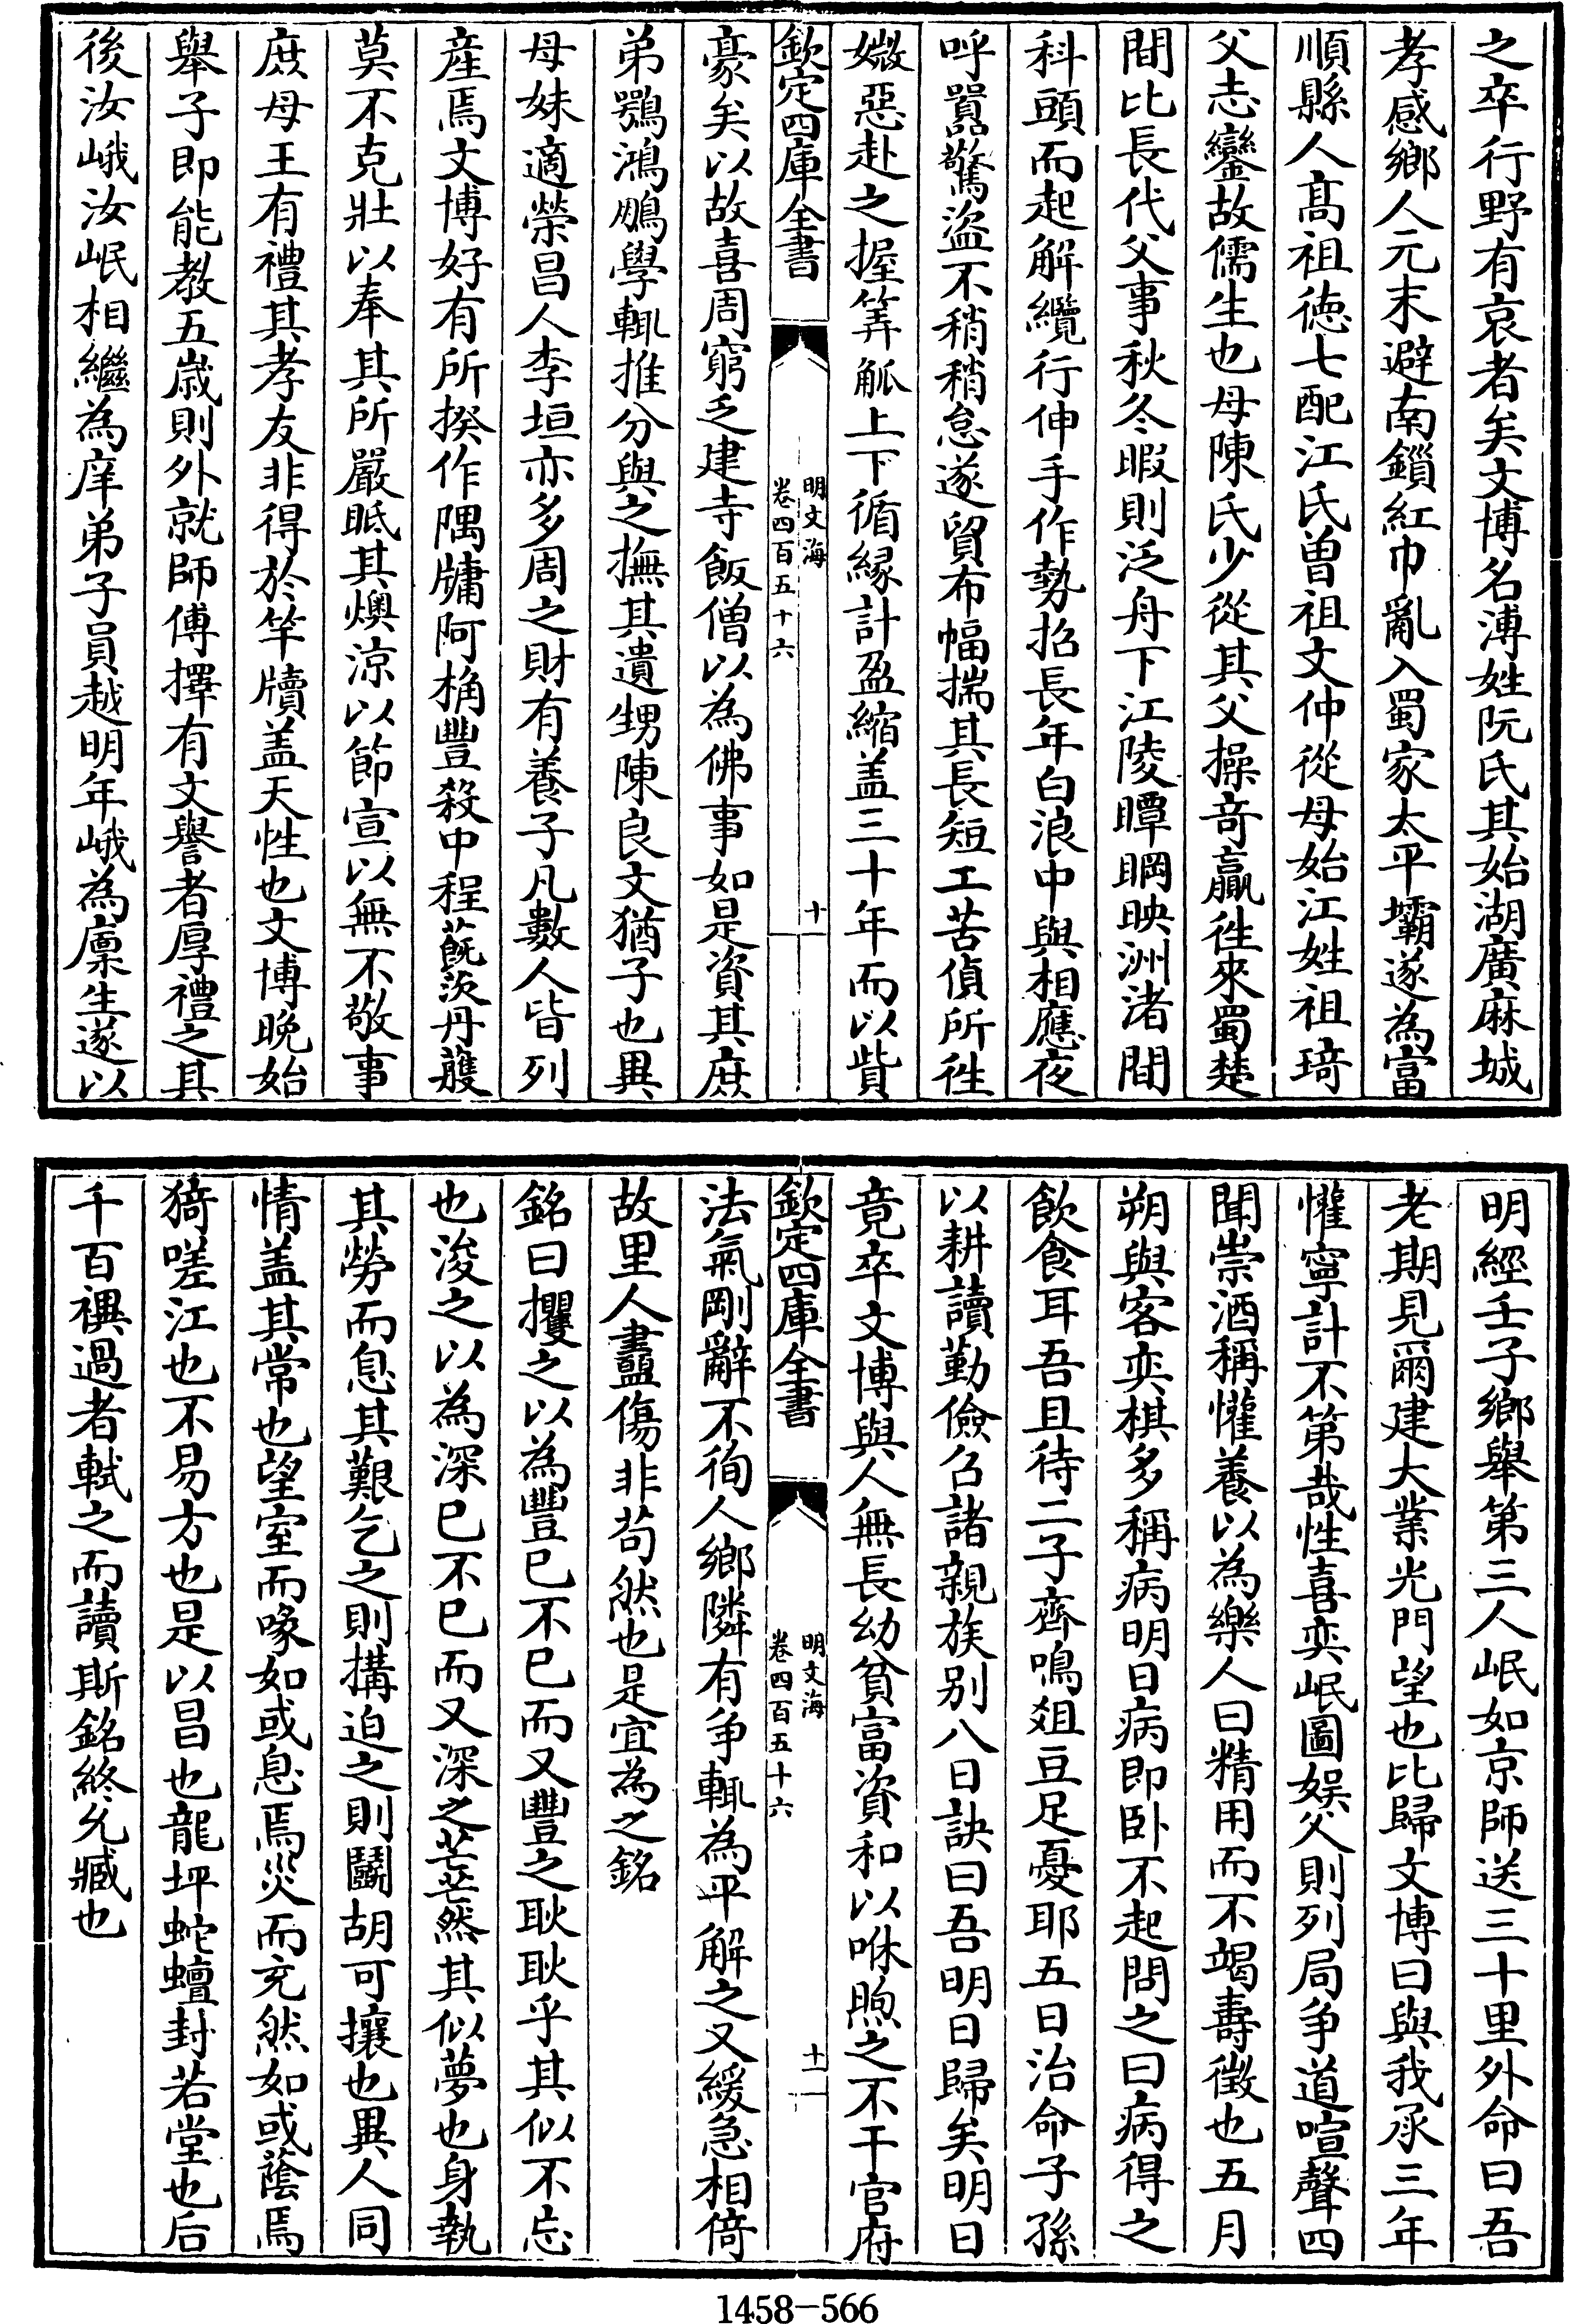 之卒行野有哀者矣文博名溥姓阮氏其始湖廣麻城
孝感鄉人元末避南鎖紅巾亂入蜀家太平壩遂為富
順縣人髙祖徳七配江氏曾祖文仲從母始江姓祖琦
父志鑾故儒生也母陳氏少從其父操竒贏徃來蜀楚
間比長代父事秋冬暇則泛舟下江陵瞫瞯映洲渚間
科頭而起解纜行伸手作勢招長年白浪中與相應夜
呼嚚驚盜不稍稍怠遂貿布幅揣其長短工苦偵所徃
媺惡赴之握筭觚上下循縁計盈縮盖三十年而以貲
欽定四庫全書
明文海
卷四百五十六
十
豪矣以故喜周窮乏建寺飯僧以為佛事如是資其庶
弟鶚鴻鵬學輒推分與之撫其遺甥陳良文猶子也異
母妹適榮昌人李垣亦多周之財有養子凡數人皆列
産焉文博好有所揆作隅牗阿桷豐殺中程蓺茨丹雘
莫不克壯以奉其所嚴眡其燠涼以節宣以無不敬事
庶母王有禮其孝友非得於竿牘盖天性也文博晚始
舉子即能教五歲則外就師傅擇有文譽者厚禮之其
後汝峨汝岷相繼為庠弟子員越明年峨為廩生遂以
明經壬子鄉舉第三人岷如京師送三十里外命曰吾
老期見爾建大業光門望也比歸文博曰與我承三年
懽寧計不第哉性喜奕岷圖娱父則列局争道喧聲四
聞崇酒稱懽養以為樂人曰精用而不竭壽徴也五月
朔與客奕棋多稱病明日病即卧不起問之曰病得之
飲食耳吾且待二子齊鳴爼豆足憂耶五日治命子孫
以耕讀勤儉召諸親族别八日訣曰吾明日歸矣明日
竟卒文博與人無長幼貧富資和以咻煦之不干官府
欽定四庫全書
明文海
卷四百五十六
十一
法氣剛辭不徇人鄉隣有争輒為平解之又緩急相倚
故里人盡傷非茍然也是宜為之銘
銘曰攫之以為豐已不已而又豐之耿耿乎其似不忘
也浚之以為深已不已而又深之茫茫然其似夢也身執
其勞而息其艱乞之則搆迫之則鬭胡可攘也異人同
情盖其常也望室而喙如或息焉災而充然如或蔭焉
猗嗟江也不易方也是以昌也龍坪蛇蟺封若堂也后
千百禩過者軾之而讀斯銘終允臧也
1458－566